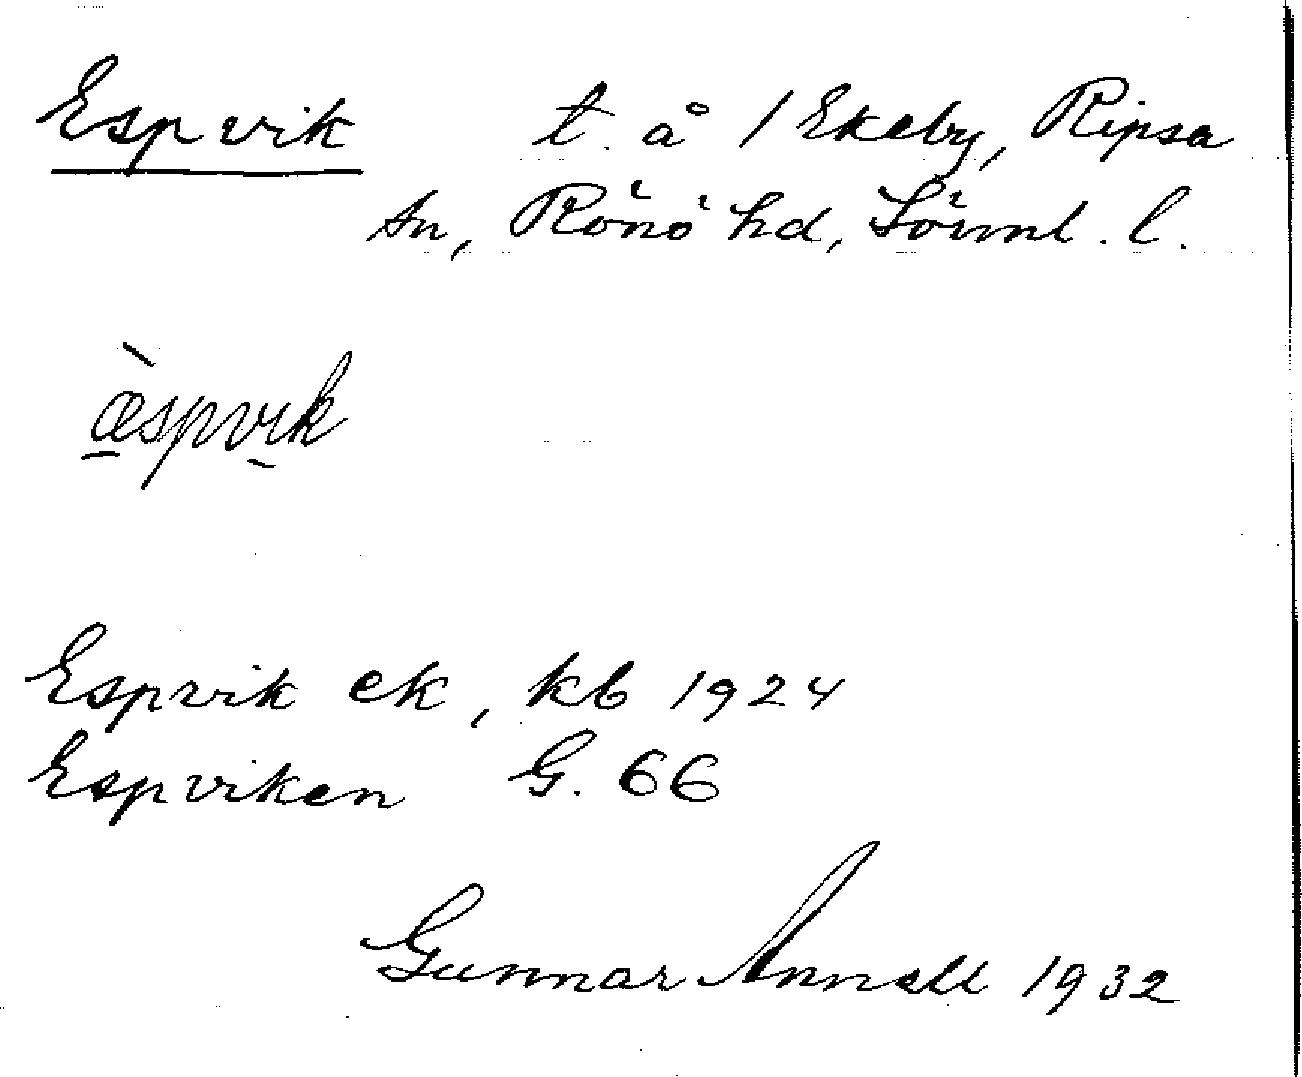 Espvik t. å 1 Ekeby, Ripsa
sn, Rönö hd, Sörml. l.
æ̀spvik
Espvik ek, kb 1924
Espviken G. 66
Gunnar Annell 1932